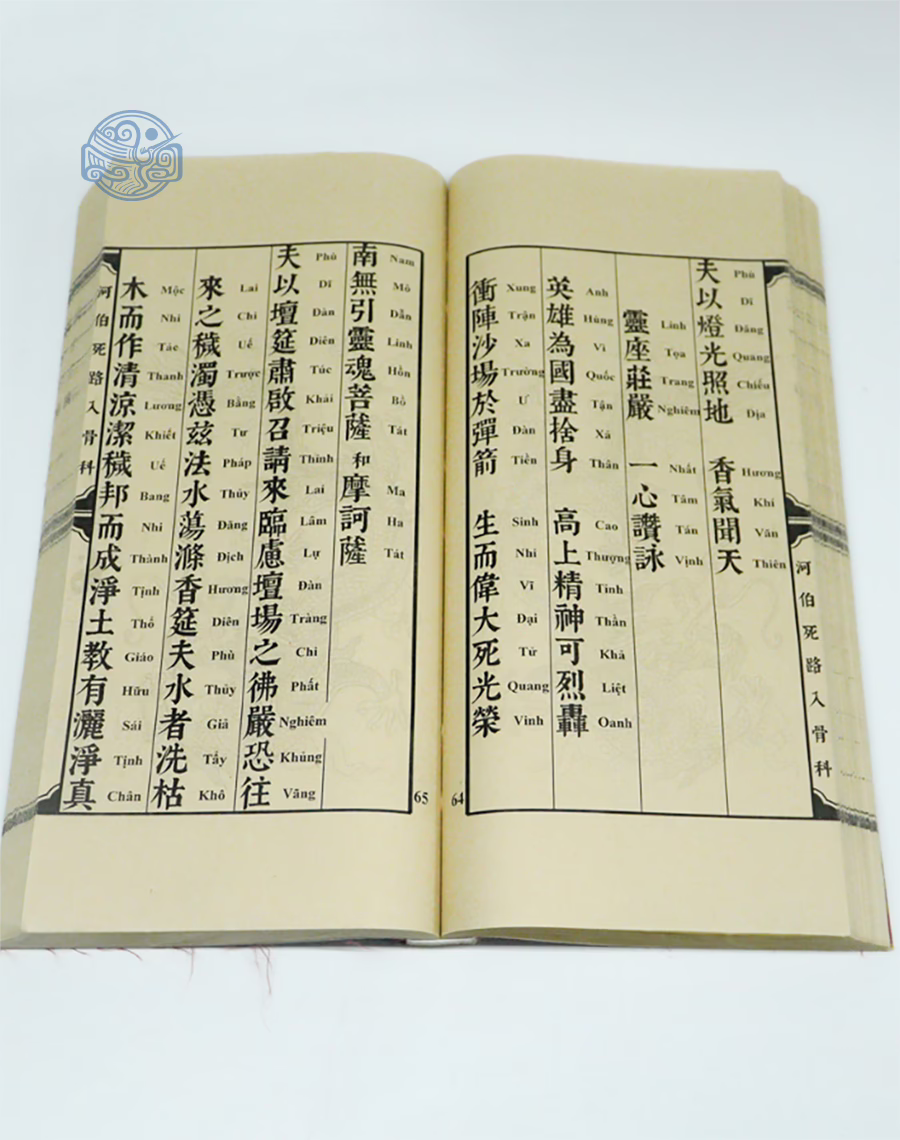 河伯死路入骨科
夫以燈光照地 香氣聞天
Phù Dĩ Đăng Quang Chiếu Địa Hương Khí Văn Thiên
靈座莊嚴 一心讚詠
Linh Tọa Trang Nghiêm Nhất Tâm Tán Vịnh
英雄為國盡捨身 高上精神可烈轟
Anh Hùng Vì Quốc Tận Xả Thân Cao Thượng Tinh Thần Khả Liệt Oanh
衝陣沙場於彈箭 生而偉大死光榮
Xung Trận Xa Trường Ư Đàn Tiễn Sinh Nhi Vĩ Đại Tử Quang Vinh
64
南無引靈魂菩薩和摩訶薩
Nam Mô Dẫn Linh Hồn Bồ Tát Ma Ha Tát
夫以壇筵肅啟召請來臨慮壇場之彿嚴恐往
Phù Dĩ Đàn Diên Túc Khải Triệu Thỉnh Lai Lâm Lự Đàn Tràng Chi Phất Nghiêm Khủng Vãng
來之穢濁憑茲法水蕩滌香筵夫水者洗枯
Lai Chi Uế Trược Bằng Tư Pháp Thủy Đãng Địch Hương Diên Phù Thủy Giả Tẩy Khô
木而作清涼潔穢邦而成淨土教有灑淨真
Mộc Nhi Tác Thanh Lương Khiết Uế Bang Nhi Thành Tịnh Thổ Giáo Hữu Sái Tịnh Chân
65
河伯死路入骨科